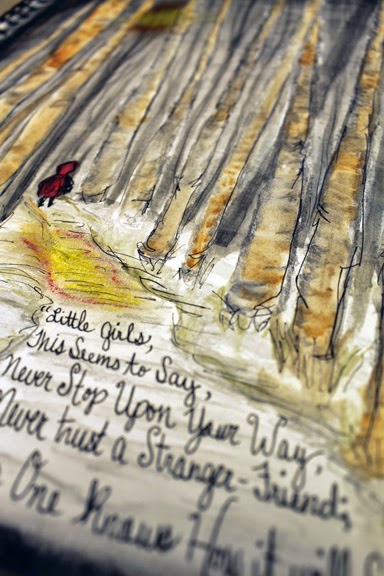 "Little girls,
This Seems to Say,
Never Stop Upon Your Way,
Never trust a Stranger-Friend;
One Knows How it will